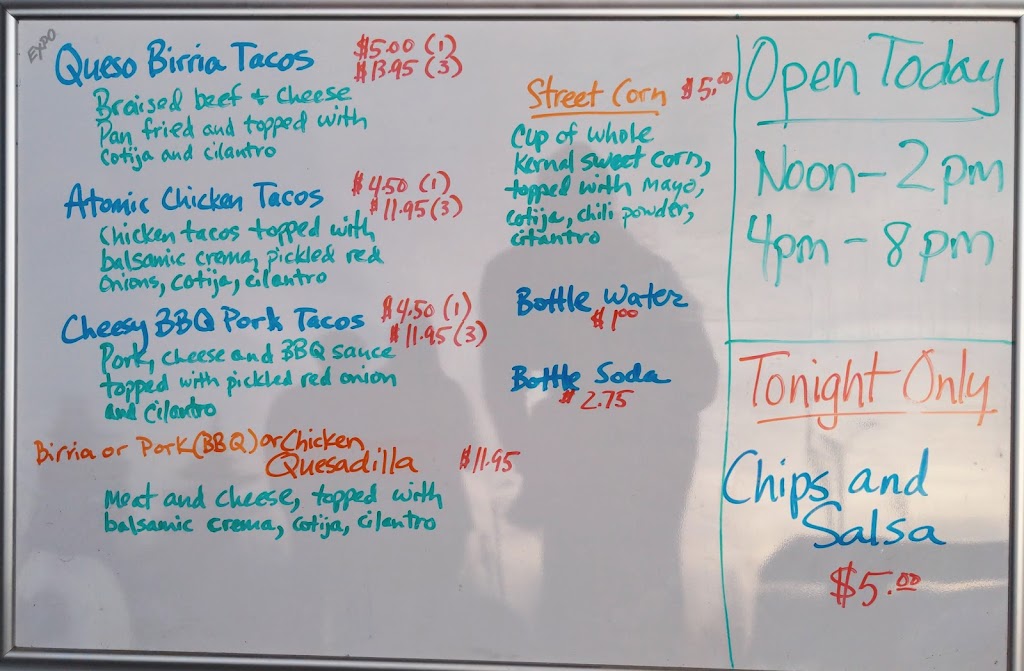 EXPO
Queso Birria Tacos $5.00 (1)
$13.95 (3)
Braised beef & cheese
Pan fried and topped with
cotija and cilantro
Atomic Chicken Tacos $4.50 (1)
$11.95 (3)
Chicken tacos topped with
balsamic crema, pickled red
onions, cotija, cilantro
Cheesy BBQ Pork Tacos $4.50 (1)
$11.95 (3)
Pork, cheese and BBQ sauce
topped with pickled red onion
and cilantro
Birria or Pork (BBQ) or Chicken
Quesadilla $11.95
Meat and cheese, topped with
balsamic crema, cotija, cilantro
Street Corn $5.00
Cup of whole
Kernal sweet corn,
topped with mayo,
cotija, chili powder,
cilantro
Bottle Water
$1.00
Bottle Soda
$2.75
Open Today
Noon - 2pm
4pm - 8pm
Tonight Only
Chips and
Salsa
$5.00